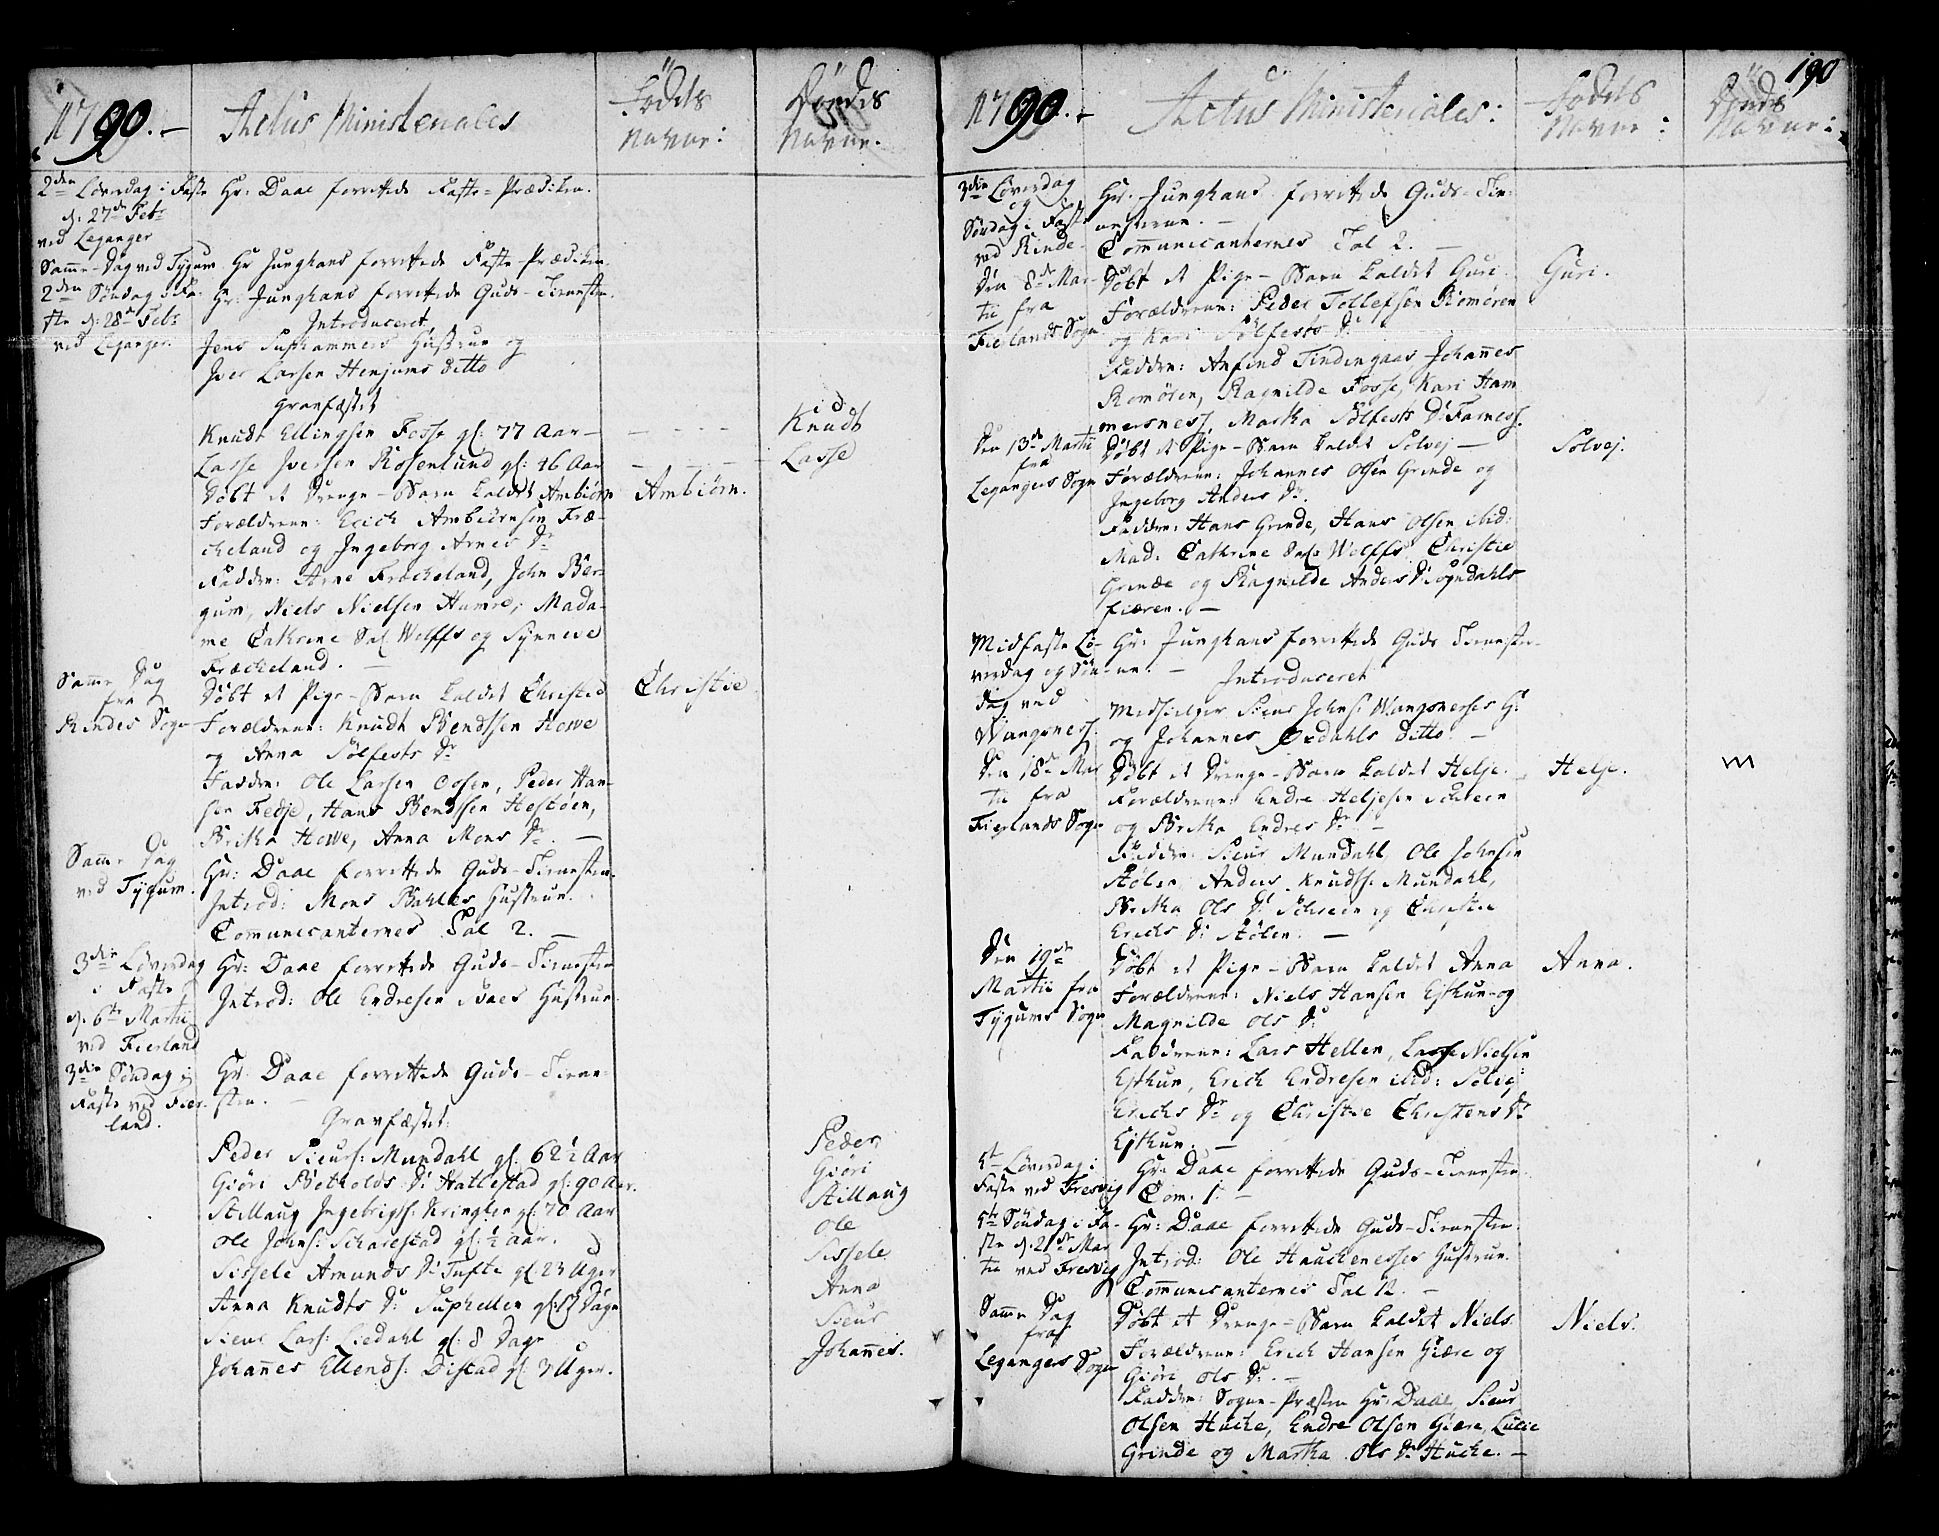 1790.—
Actus Ministeriales
Föddes
Navne:
Döndes
Navne.
2den Löverdag i Faste
d: 27de Febr
ved Leganger
Hr: Daae forrettede Faste-Prædiken.
Samme-Dag ved Tygum
Hr Junghans forrettede Faste-Prædiken
2den Söndag i Fa-
ste d: 28de Febr
ved Leganger.
Hr: Junghans forrettede Guds-Tienesten.
Introduceret
Jens Suphammers Hustrue og
Iver Larsen Henjums ditto
Gravfæstet
Knudt Ellingsen Fosse gl: 77 Aar—
Knudt
Lasse Iversen Rosenlund gl: 16 Aar
Lasse
Döbt et Drenge-Barn kaldet Ambiörn
Ambiörn.
Forældrene: Erich Ambiörnsen Fræ-
cheland og Ingeborg Arnes Dr
Faddere: Arne Frækeland, John Ber-
gum, Niels Nielsen Hamre, Mada-
me Cathrine Sal Wolffs og Synneve
Frækeland. —
Samme Dag
fra
Rindes Sogn
Döbt et Pige-Barn kaldet Christie
Christie
Forældrene: Knudt Bendtsen Howe
og Anna Sölfests Dr
Faddere: Ole Larsen Ossen, Peder Han-
sen Fedje, Hans Bendtsen Hestöen,
Britha Howe, Anna Mons Dr. —
Samme Dag
ved Tygum.
Hr: Daae forrettede Guds-Tienesten.
Introd: Mons Bahles Hustrue.
Communicanternes Tal 2. —
3die Löverdag
i Faste
d: 6te Martii
ved Fierland
Hr: Daae forrettede Guds-Tienesten
Introd: Ole Endresen Bøes Hustrue.
3die Söndag i
Faste ved Fier-
land.
Hr: Daae forrettede Guds-Tiene-
sten. —
Gravfæstet:
Peder Siurs: Mundahl gl: 62½ Aar
Peder
Giöri Botholds Dr Hatlestad gl: 90 Aar.
Giöri
Stillaug Ingebrigts: Kringlen gl: 70 Aar
Stillaug
Ole Johns: Scharestad gl: ½ Aar.
Ole
Sissele Amunds Dr Tufte gl: 23 Uger
Sissele
Anna Knudts Dr: Suphellen gl: Dage
Anna
Siur Lars: Liedahl gl: 8 Dage
Siur
Johannes Ellends: Distad gl: 3 Uger.
Johannes.
190
1790.—
Actus Ministeriales:
Föddes
Navne:
Döndes
Navne:
3die Löverdag
og
Söndag i Faste
ved Rinde
Hr: Junghans forrettede Guds-Tie-
nesterne. —
Communicanternes Tal 2. —
Den 8de Mar-
tii fra
Fierlands Sogn
Döbt et Pige-Barn kaldet Guri
Guri.
Forældrene: Peder Tollefsen Romören
og Kari Sölfests Dr
Faddere: Anfind Tindingaas, Johannes
Romören, Ragnilde Fosse, Kari Ham
mersness, Martha Sölfests Dr Farness.
Den 13de Martii
fra
Legangers Sogn
Döbt et Pige-Barn kaldet Solvej—
Solvej.
Forældrene: Johannes Olsen Grinde og
Ingeborg Anders Dr.
Faddere: Hans Grinde, Hans Olsen ibid:
Mad: Cathrine Sal: Wolffs, Christie
Grinde og Ragnilde Anders Dr Sogndahls
fiæren. —
Midfaste Lö-
verdag og Sön-
dag ved
Wangsness.
Hr: Junghans forrettede Guds Tieneste-
ne. —
Introduceret
Medhielper Siurs Johns: Wangsnesses H:
og Johannes Oxdahls Ditto —
Den 18de Mar
tii fra
Fierlands Sogn
Döbt et Drenge-Barn kaldet Helje.
Helje.
Forældrene: Endre Heljesen Scheen
og Britha Endres Dr —
Faddere: Siur Mundahl, Ole Johnsen
Stölen, Anders Knudts: Mundahl,
Britha Ols Dr Scheen og Christie
Erichs Dr Stölen. —
Den 19de
Martii fra
Tygums Sogn
Döbt et Pige-Barn kaldet Anna
Anna.
Forældrene: Niels Hansen Esthun og
Magnilde Ols Dr
Faddrene: Lars Hellen, Lasse Nielsen
Esthun, Erich Endresen ibid: Solvej
Erichs Dr og Christie Christens Dr
Esthun. —
5te Löverdag i
Faste ved Fresvig
Hr: Daae forrettede Guds-Tienesten
Com: 1. —
5te Söndag i Fa-
ste d: 21de Mar
tii ved Fresvig
Hr: Daae forrettede Guds-Tienesten.
Introd: Ole Hauchenesses Hustrue.
Communicanternes Tal 12. —
Samme Dag
fra
Legangers Sogn
Döbt et Drenge-Barn kaldet Niels
Niels.
Forældrene: Erich Hansen Giære og
Giöri Ols Dr. —
Faddere: Sogne-Præsten Hr: Daae, Siur
Olsen Huche, Endre Olsen Giære, Lucie
Grinde og Martha Ols Dr Huche. —